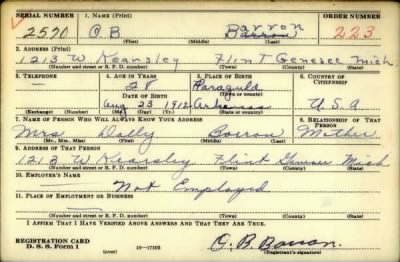 SERIAL NUMBER 1. NAME (Print) ORDER NUMBER
2570 O B Barron 223
Barron
(First) (Middle) (Last)
2. ADDRESS (Print)
1213 W Kearsley Flint Genesee Mich.
(Number and street or R. F. D. number) (Town) (County) (State)
3. TELEPHONE 4. AGE IN YEARS 5. PLACE OF BIRTH 6. COUNTRY OF CITIZENSHIP
28 Paraguld
(Town or county)
DATE OF BIRTH
Aug 23 1912 Arkansas U.S.A
(Exchange) (Number) (Mo.) (Day) (Yr.) (State or country)
7. NAME OF PERSON WHO WILL ALWAYS KNOW YOUR ADDRESS 8. RELATIONSHIP OF THAT PERSON
Mrs Dolly Barron Mother
(Mr., Mrs., Miss) (First) (Middle) (Last)
9. ADDRESS OF THAT PERSON
1213 W Kearsley Flint Genesee Mich
(Number and street or R. F. D. number) (Town) (County) (State)
10. EMPLOYER'S NAME
Not Employed
11. PLACE OF EMPLOYMENT OR BUSINESS
(Number and street or R. F. D. number) (Town) (County) (State)
I AFFIRM THAT I HAVE VERIFIED ABOVE ANSWERS AND THAT THEY ARE TRUE.
REGISTRATION CARD
D. S. S. Form 1 (over) 16—17105 O. B. Barron.
(Registrant's signature)